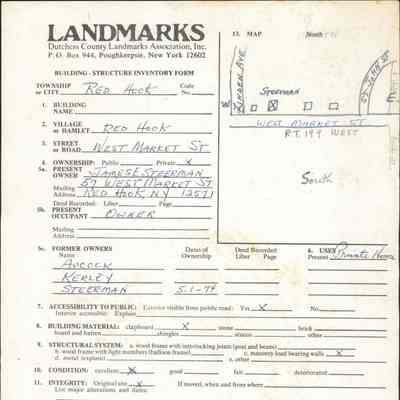 LANDMARKS
Dutchess County Landmarks Association, Inc.
P.O. Box 944, Poughkeepsie, New York 12602
BUILDING - STRUCTURE INVENTORY FORM
TOWNSHIP or CITY RED HOOK Code No.
1. BUILDING NAME
2. VILLAGE or HAMLET RED HOOK
3. STREET or ROAD WEST MARKET ST
4. OWNERSHIP: Public Private X
5a. PRESENT OWNER JAMES E STEERMAN
57 WEST MARKET ST
Mailing Address RED HOOK, NY 12571
Deed Recorded: Liber Page
5b. PRESENT OCCUPANT OWNER
Mailing Address
5c. FORMER OWNERS Dates of Deed Recorded
Name Ownership Liber Page
KERLEY
STEERMAN 5-1-74
6. USES
Present Private Home
7. ACCESSIBILITY TO PUBLIC: Exterior visible from public road: Yes X No
Interior accessible: Explain
8. BUILDING MATERIAL: clapboard X stone brick
board and batten shingles stucco other
9. STRUCTURAL SYSTEM: a. wood frame with interlocking joints (post and beams)
b. wood frame with light members (balloon frame) c. masonry load bearing walls X
d. metal (explain) e. other
10. CONDITION: excellent X good fair deteriorated
11. INTEGRITY: Original site X If moved, when and from where
List major alterations and dates:
13. MAP North
LINDEN AVE
STEERMAN
WEST MARKET ST
RT. 199 WEST
South